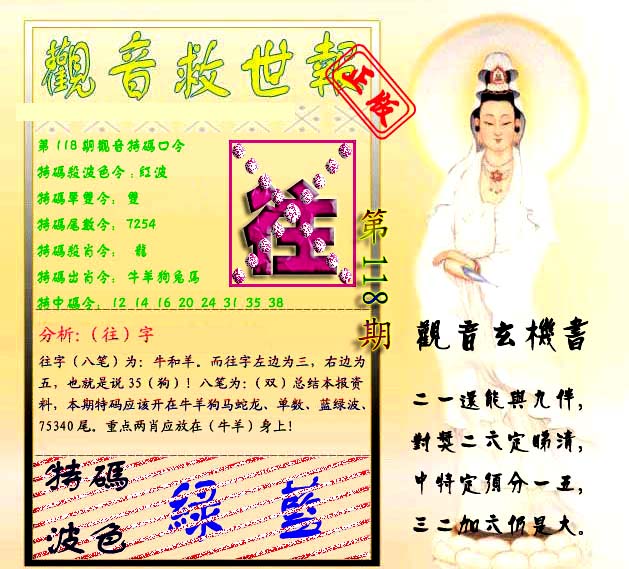 觀音救世報
第118期觀音特碼口令
特碼殺波色令：紅波
特碼單雙令： 雙
特碼尾數令： 7254
特碼殺肖令： 龍
特碼出肖令： 牛羊狗兔馬
特中碼令： 12 14 16 20 24 31 35 38
往
第118期
分析:（往）字
往字（八笔）为：牛和羊。而往字左边为三，右边为
五，也就是说 35（狗）！八笔为：（双）总结本报资
料，本期特码应该开在牛羊狗马蛇龙、单数、蓝绿波、
75340 尾。重点两肖应放在（牛羊）身上！
特碼
波色
綠 藍
觀音玄機書
二一還能與九伴，
對獎二六定睇清，
中特定須分一五，
三二加六仍是大。